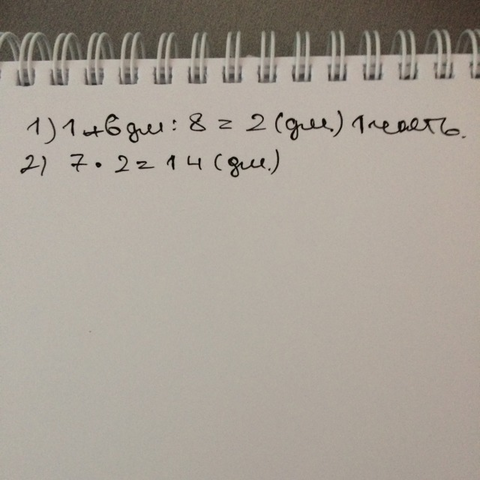 1) 1м6дм : 8 = 2 (дм.) 1часть.
2) 7 • 2 = 14 (дм.)